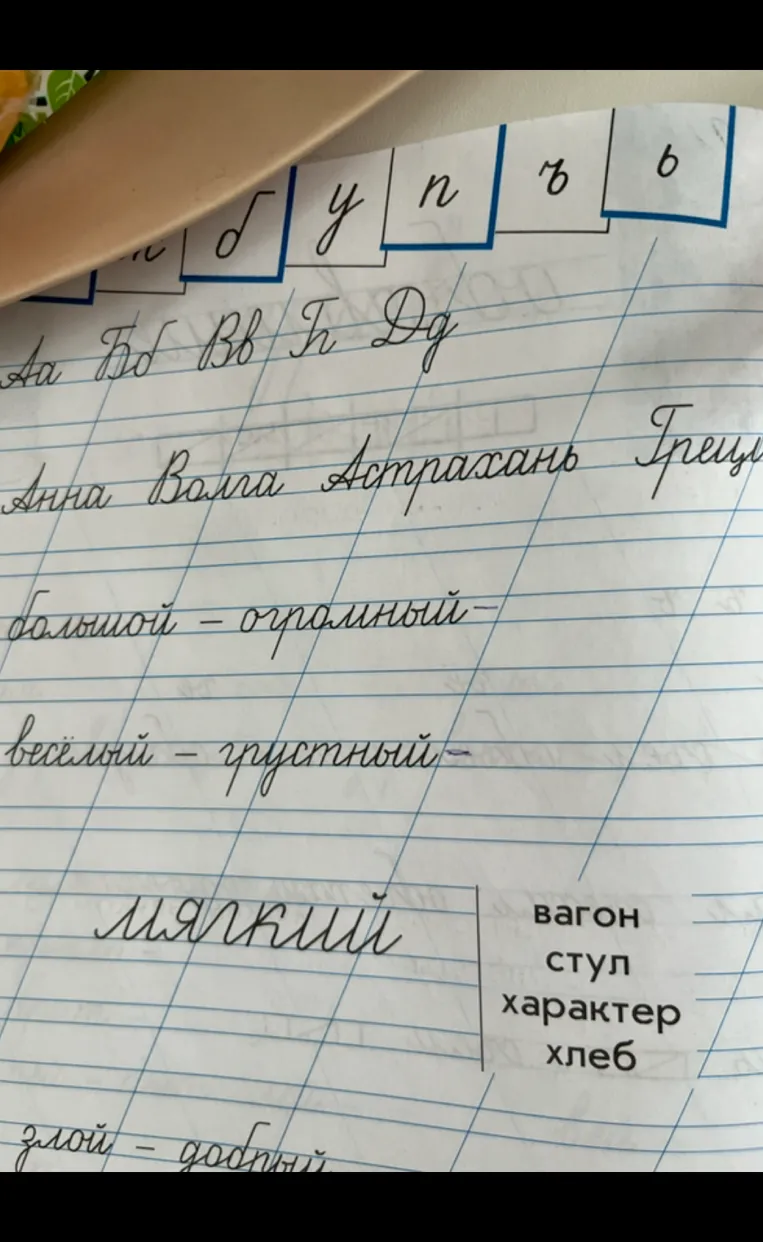 б у п ъ ь
Аа Бб Вв Гг Дд
Анна Волга Астрахань
большой – огромный –
весёлый – грустный –
мягкий
вагон
стул
характер
хлеб
злой – добрый